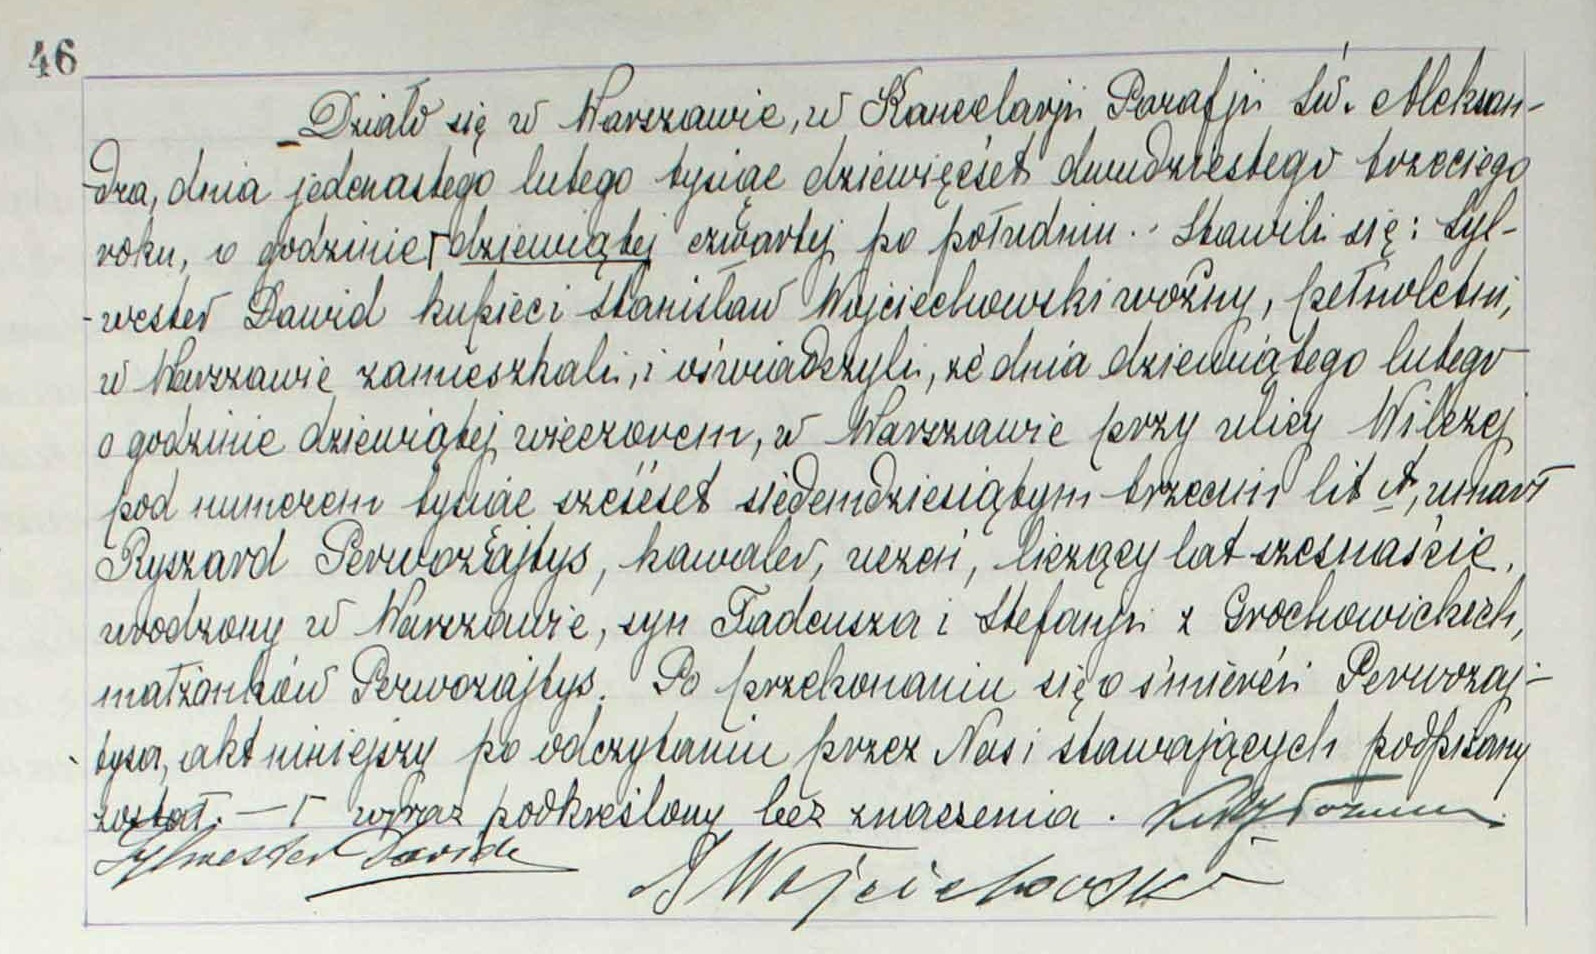 46
Działo się w Warszawie, w Kancelarji Parafji Św. Aleksan-
dra, dnia jedenastego lutego tysiąc dziewięćset dwudziestego trzeciego
roku, o godzinie ┌ dziewiątej czwartej po południu. Stawili się: Syl-
wester Dawid kupiec i Stanisław Wojciechowski woźny, pełnoletni,
w Warszawie zamieszkali, i oświadczyli, że dnia dziewiątego lutego
o godzinie dziewiątej wieczorem, w Warszawie przy ulicy Wilczej
pod numerem tysiąc sześćset siedemdziesiątym trzecim lit A, umarł
Ryszard Perwozajtys, kawaler, uczeń, liczący lat szesnaście,
urodzony w Warszawie, syn Tadeusza i Stefanji z Grochowickich,
małżonków Perwozajtys. Po przekonaniu się o śmierci Perwozaj-
tysa, akt niniejszy po odczytaniu przez Nas i stawających podpisany
został. — ┌ wyraz podkreślony bez znaczenia.
Sylwester Dawid
S Wojciechowski